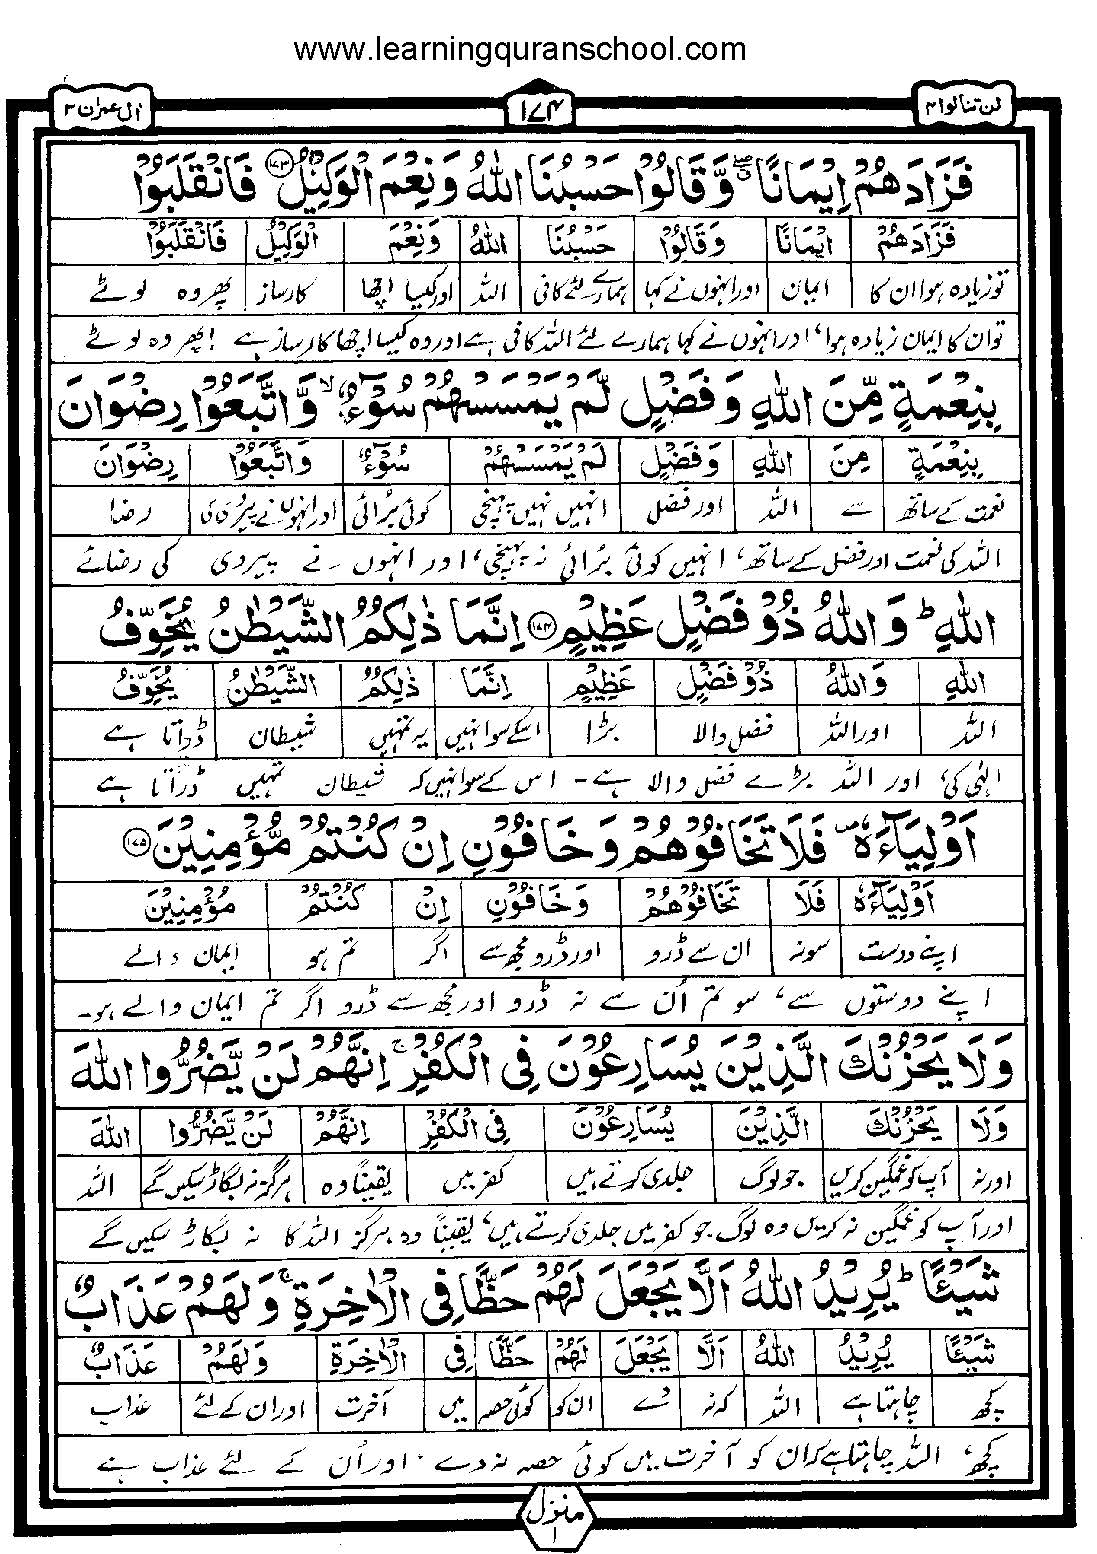 www.learningquranschool.com
لن تنالوا ۴
۱۷۴
اٰل عمران ۳
فَزَادَهُمْ اِيْمَانًا ۖ وَّقَالُوْا حَسْبُنَا اللّٰهُ وَنِعْمَ الْوَكِيْلُ ﴿۱۷۳﴾ فَانْقَلَبُوْا
فَزَادَهُمْ اِيْمَانًا وَقَالُوْا حَسْبُنَا اللّٰهُ وَنِعْمَ الْوَكِيْلُ فَانْقَلَبُوْا
تو زیادہ ہوا ان کا ایمان اور انہوں نے کہا ہمارے لئے کافی اللہ اور کیسا اچھا کارساز پھر وہ لوٹے
تو ان کا ایمان زیادہ ہوا، اور انہوں نے کہا ہمارے لئے اللہ کافی ہے اور وہ کیسا اچھا کارساز ہے! پھر وہ لوٹے
بِنِعْمَةٍ مِّنَ اللّٰهِ وَفَضْلٍ لَّمْ يَمْسَسْهُمْ سُوْٓءٌ ۙ وَّاتَّبَعُوْا رِضْوَانَ
بِنِعْمَةٍ مِنَ اللّٰهِ وَفَضْلٍ لَمْ يَمْسَسْهُمْ سُوْٓءٌ وَاتَّبَعُوْا رِضْوَانَ
نعمت کے ساتھ سے اللہ اور فضل انہیں نہیں پہنچی کوئی برُائی اور انہوں نے پیروی کی رضا
اللہ کی نعمت اور فضل کے ساتھ، انہیں کوئی برُائی نہ پہنچی، اور انہوں نے پیروی کی رضائے
اللّٰهِ ؕ وَاللّٰهُ ذُوْ فَضْلٍ عَظِيْمٍ ﴿۱۷۴﴾ اِنَّمَا ذٰلِكُمُ الشَّيْطٰنُ يُخَوِّفُ
اللّٰهِ وَاللّٰهُ ذُوْ فَضْلٍ عَظِيْمٍ اِنَّمَا ذٰلِكُمُ الشَّيْطٰنُ يُخَوِّفُ
اللہ اور اللہ فضل والا بڑا اسکے سوا نہیں یہ تمہیں شیطان ڈراتا ہے
الٰہی کی، اور اللہ بڑے فضل والا ہے۔ اس کے سوا نہیں کہ شیطان تمہیں ڈراتا ہے
اَوْلِيَآءَهٗ ۪ فَلَا تَخَافُوْهُمْ وَخَافُوْنِ اِنْ كُنْتُمْ مُّؤْمِنِيْنَ ﴿۱۷۵﴾
اَوْلِيَآءَهٗ فَلَا تَخَافُوْهُمْ وَخَافُوْنِ اِنْ كُنْتُمْ مُؤْمِنِيْنَ
اپنے دوست سو نہ ان سے ڈرو اور ڈرو مجھ سے اگر تم ہو ایمان والے
اپنے دوستوں سے، سو تم اُن سے نہ ڈرو اور مجھ سے ڈرو اگر تم ایمان والے ہو۔
وَلَا يَحْزُنْكَ الَّذِيْنَ يُسَارِعُوْنَ فِى الْكُفْرِ ۚ اِنَّهُمْ لَنْ يَّضُرُّوا اللّٰهَ
وَلَا يَحْزُنْكَ الَّذِيْنَ يُسَارِعُوْنَ فِى الْكُفْرِ اِنَّهُمْ لَنْ يَّضُرُّوا اللّٰهَ
اور نہ آپ کو غمگین کریں جو لوگ جلدی کرتے ہیں کفر میں یقیناً وہ ہرگز نہ بگاڑ سکیں گے اللہ
اور آپ کو غمگین نہ کریں وہ لوگ جو کفر میں جلدی کرتے ہیں، یقیناً وہ ہرگز اللہ کا نہ بگاڑ سکیں گے
شَيْئًا ؕ يُرِيْدُ اللّٰهُ اَلَّا يَجْعَلَ لَهُمْ حَظًّا فِى الْاٰخِرَةِ ۚ وَلَهُمْ عَذَابٌ
شَيْئًا يُرِيْدُ اللّٰهُ اَلَّا يَجْعَلَ لَهُمْ حَظًّا فِى الْاٰخِرَةِ وَلَهُمْ عَذَابٌ
کچھ چاہتا ہے اللہ کہ نہ دے ان کو کوئی حصہ میں آخرت اور ان کے لئے عذاب
کچھ، اللہ چاہتا ہے کہ ان کو آخرت میں کوئی حصہ نہ دے، اور اُن کے لئے عذاب ہے
منزل ۱